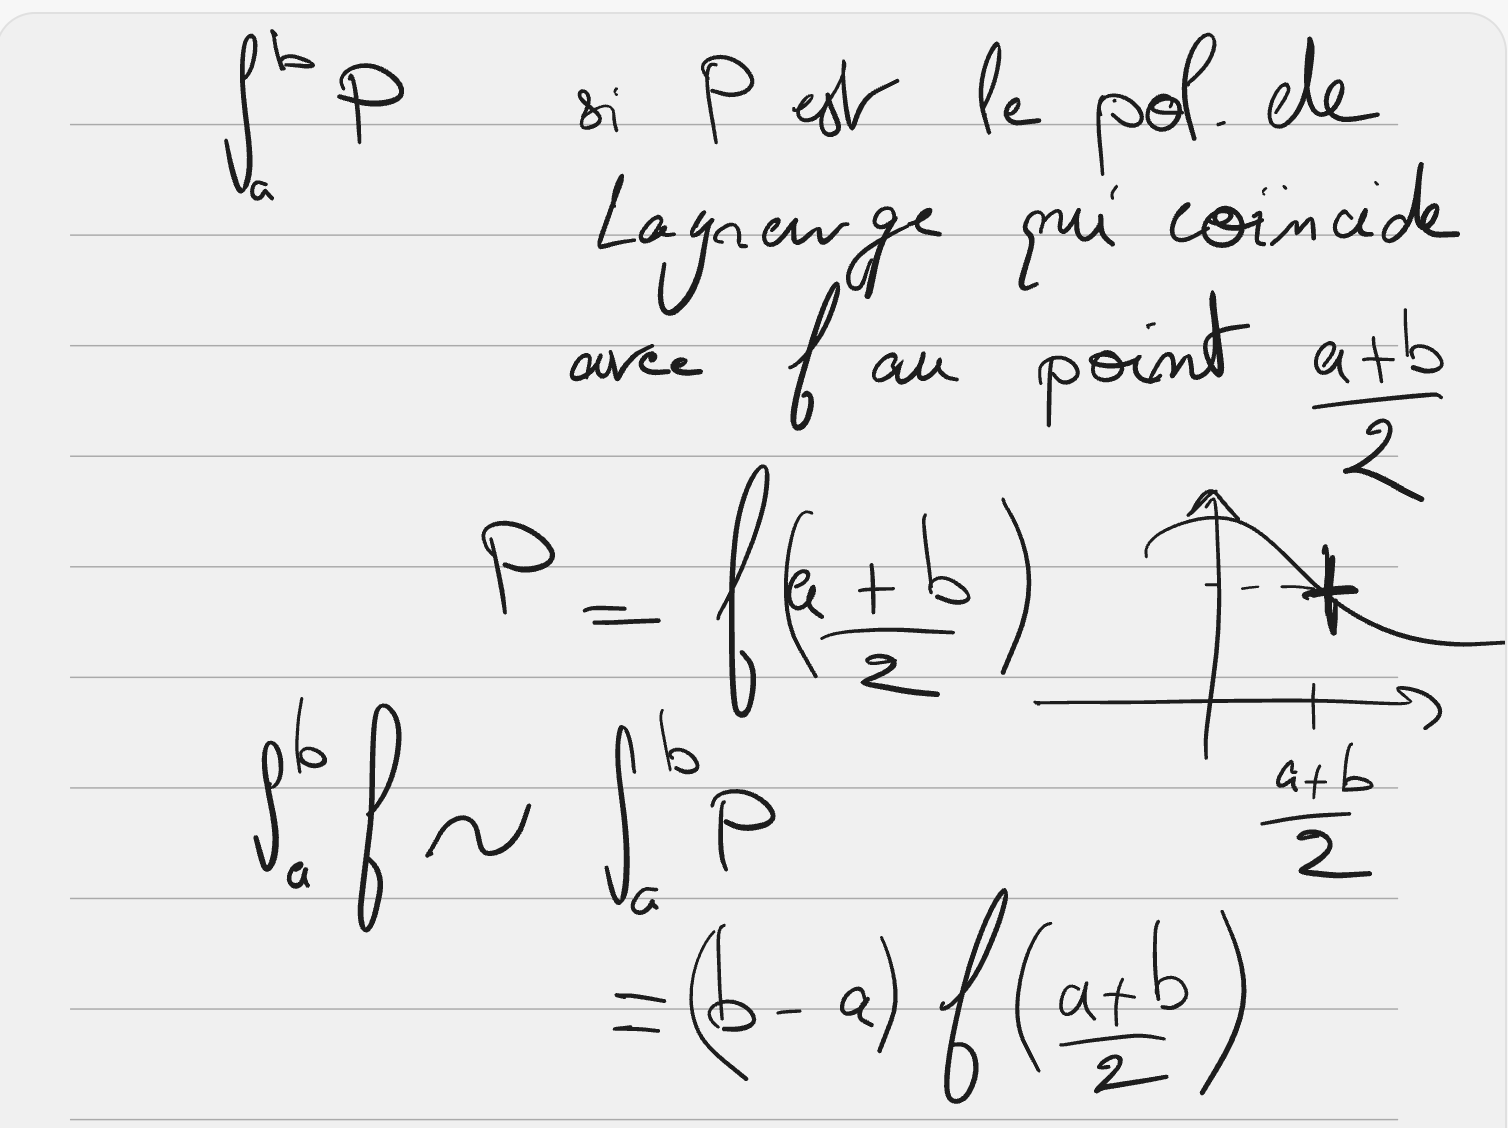 ∫_a^b P si P est le pol. de
Lagrange qui coïncide
avec f au point (a+b)/2
P = f((a+b)/2)
(a+b)/2
∫_a^b f ~ ∫_a^b P
= (b-a) f((a+b)/2)